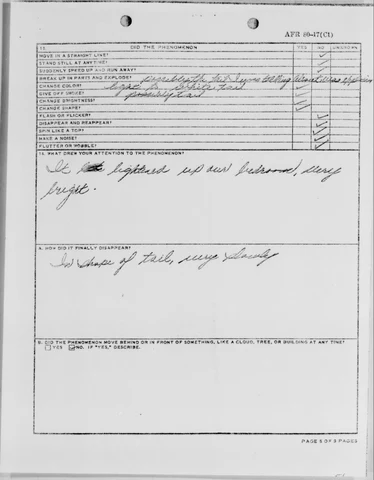 AFR 80-17(C1)
13. DID THE PHENOMENON YES NO UNKNOWN
MOVE IN A STRAIGHT LINE?
STAND STILL AT ANYTIME?
SUDDENLY SPEED UP AND RUN AWAY?
BREAK UP IN PARTS AND EXPLODE? possible
CHANGE COLOR? light to white tail
GIVE OFF SMOKE? possibly tail
CHANGE BRIGHTNESS?
CHANGE SHAPE?
FLASH OR FLICKER?
DISAPPEAR AND REAPPEAR?
SPIN LIKE A TOP?
MAKE A NOISE?
FLUTTER OR WOBBLE?
WHAT DREW YOUR ATTENTION TO THE PHENOMENON?
It lightened up our bedroom, very
bright.
HOW DID IT FINALLY DISAPPEAR?
In shape of tail, very slowly
DID THE PHENOMENON MOVE BEHIND OR IN FRONT OF SOMETHING, LIKE A CLOUD, TREE, OR BUILDING AT ANY TIME?
YES NO. IF "YES," DESCRIBE.
PAGE 5 OF 9 PAGES